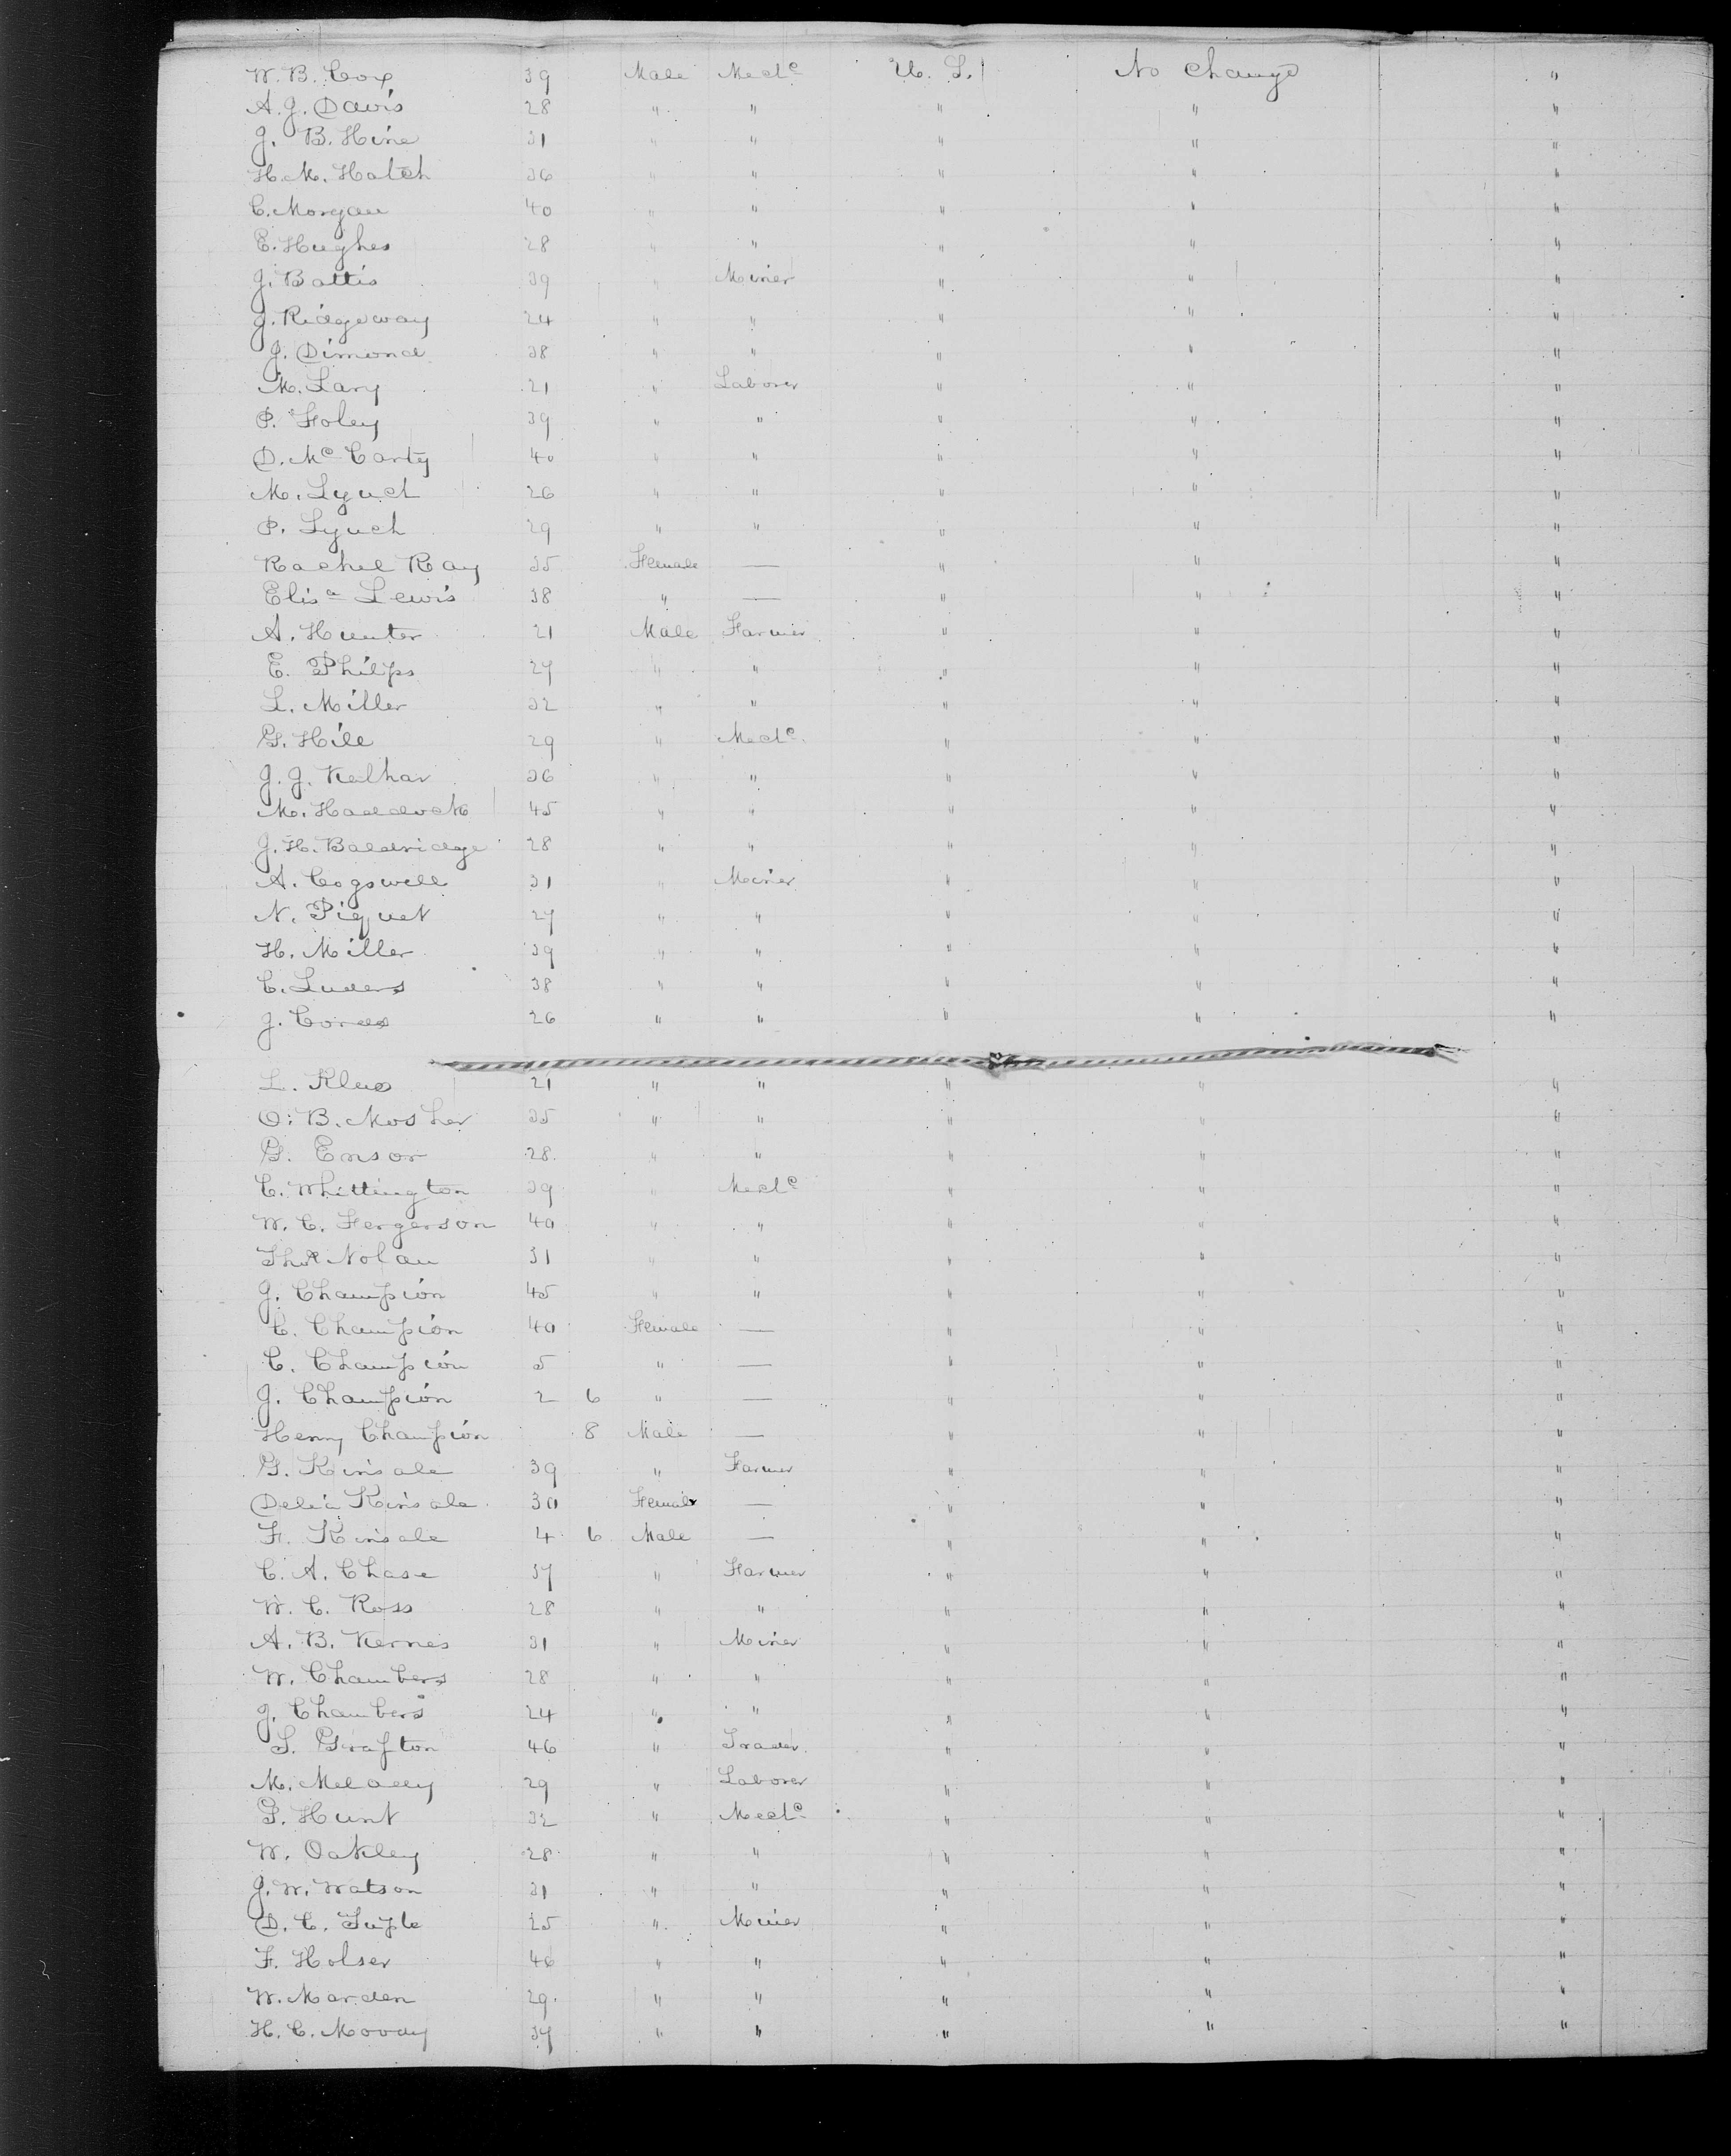 W. B. Cox 39 Male Mecc U. S. No Change "
A. J. Davis 28 " " " " "
J. B. Hine 31 " " " " "
H. M. Hatch 36 " " " " "
C. Morgan 40 " " " " "
E. Hughes 28 " " " " "
J. Battis 39 " Miner " " "
J. Ridgeway 24 " " " " "
J. Dimond 38 " " " " "
M. Lary 21 " Laborer " " "
P. Foley 39 " " " " "
D. Mc Carty 40 " " " " "
M. Lynch 26 " " " " "
P. Lynch 29 " " " " "
Rachel Ray 35 Female — " " "
Elisa Lewis 38 " — " " "
A. Hunter 21 Male Farmer " " "
E. Philips 27 " " " " "
L. Miller 32 " " " " "
G. Hill 29 " Mecc " " "
J. J. Kelhar 36 " " " " "
M. Haddock 45 " " " " "
J. H. Baldridge 28 " " " " "
A. Cogswell 31 " Miner " " "
N. Piquet 27 " " " " "
H. Miller 39 " " " " "
C. Luders 38 " " " " "
J. Cords 26 " " " " "
L. Klus 21 " " " " "
O. B. Mosher 35 " " " " "
G. Ensor 28 " " " " "
C. Whittington 39 " Mecc " " "
W. C. Fergerson 40 " " " " "
Thos Nolan 31 " " " " "
J. Champion 45 " " " " "
C. Champion 40 Female — " " "
C. Champion 5 " — " " "
J. Champion 2 6 " — " " "
Henry Champion 8 Male — " " "
G. Kinsale 39 " Farmer " " "
Delia Kinsale 30 Female — " " "
F. Kinsale 4 6 Male — " " "
C. A. Chase 37 " Farmer " " "
W. C. Ross 28 " " " " "
A. B. Kernes 31 " Miner " " "
W. Chambers 28 " " " " "
J. Chambers 24 " " " " "
S. Grafton 46 " Trader " " "
M. Melally 29 " Laborer " " "
G. Hunt 32 " Mecc " " "
W. Oakley 28 " " " " "
J. W. Watson 31 " " " " "
D. C. Tuple 25 " Miner " " "
F. Holser 46 " " " " "
W. Marden 29 " " " " "
H. C. Mooday 37 " " " " "